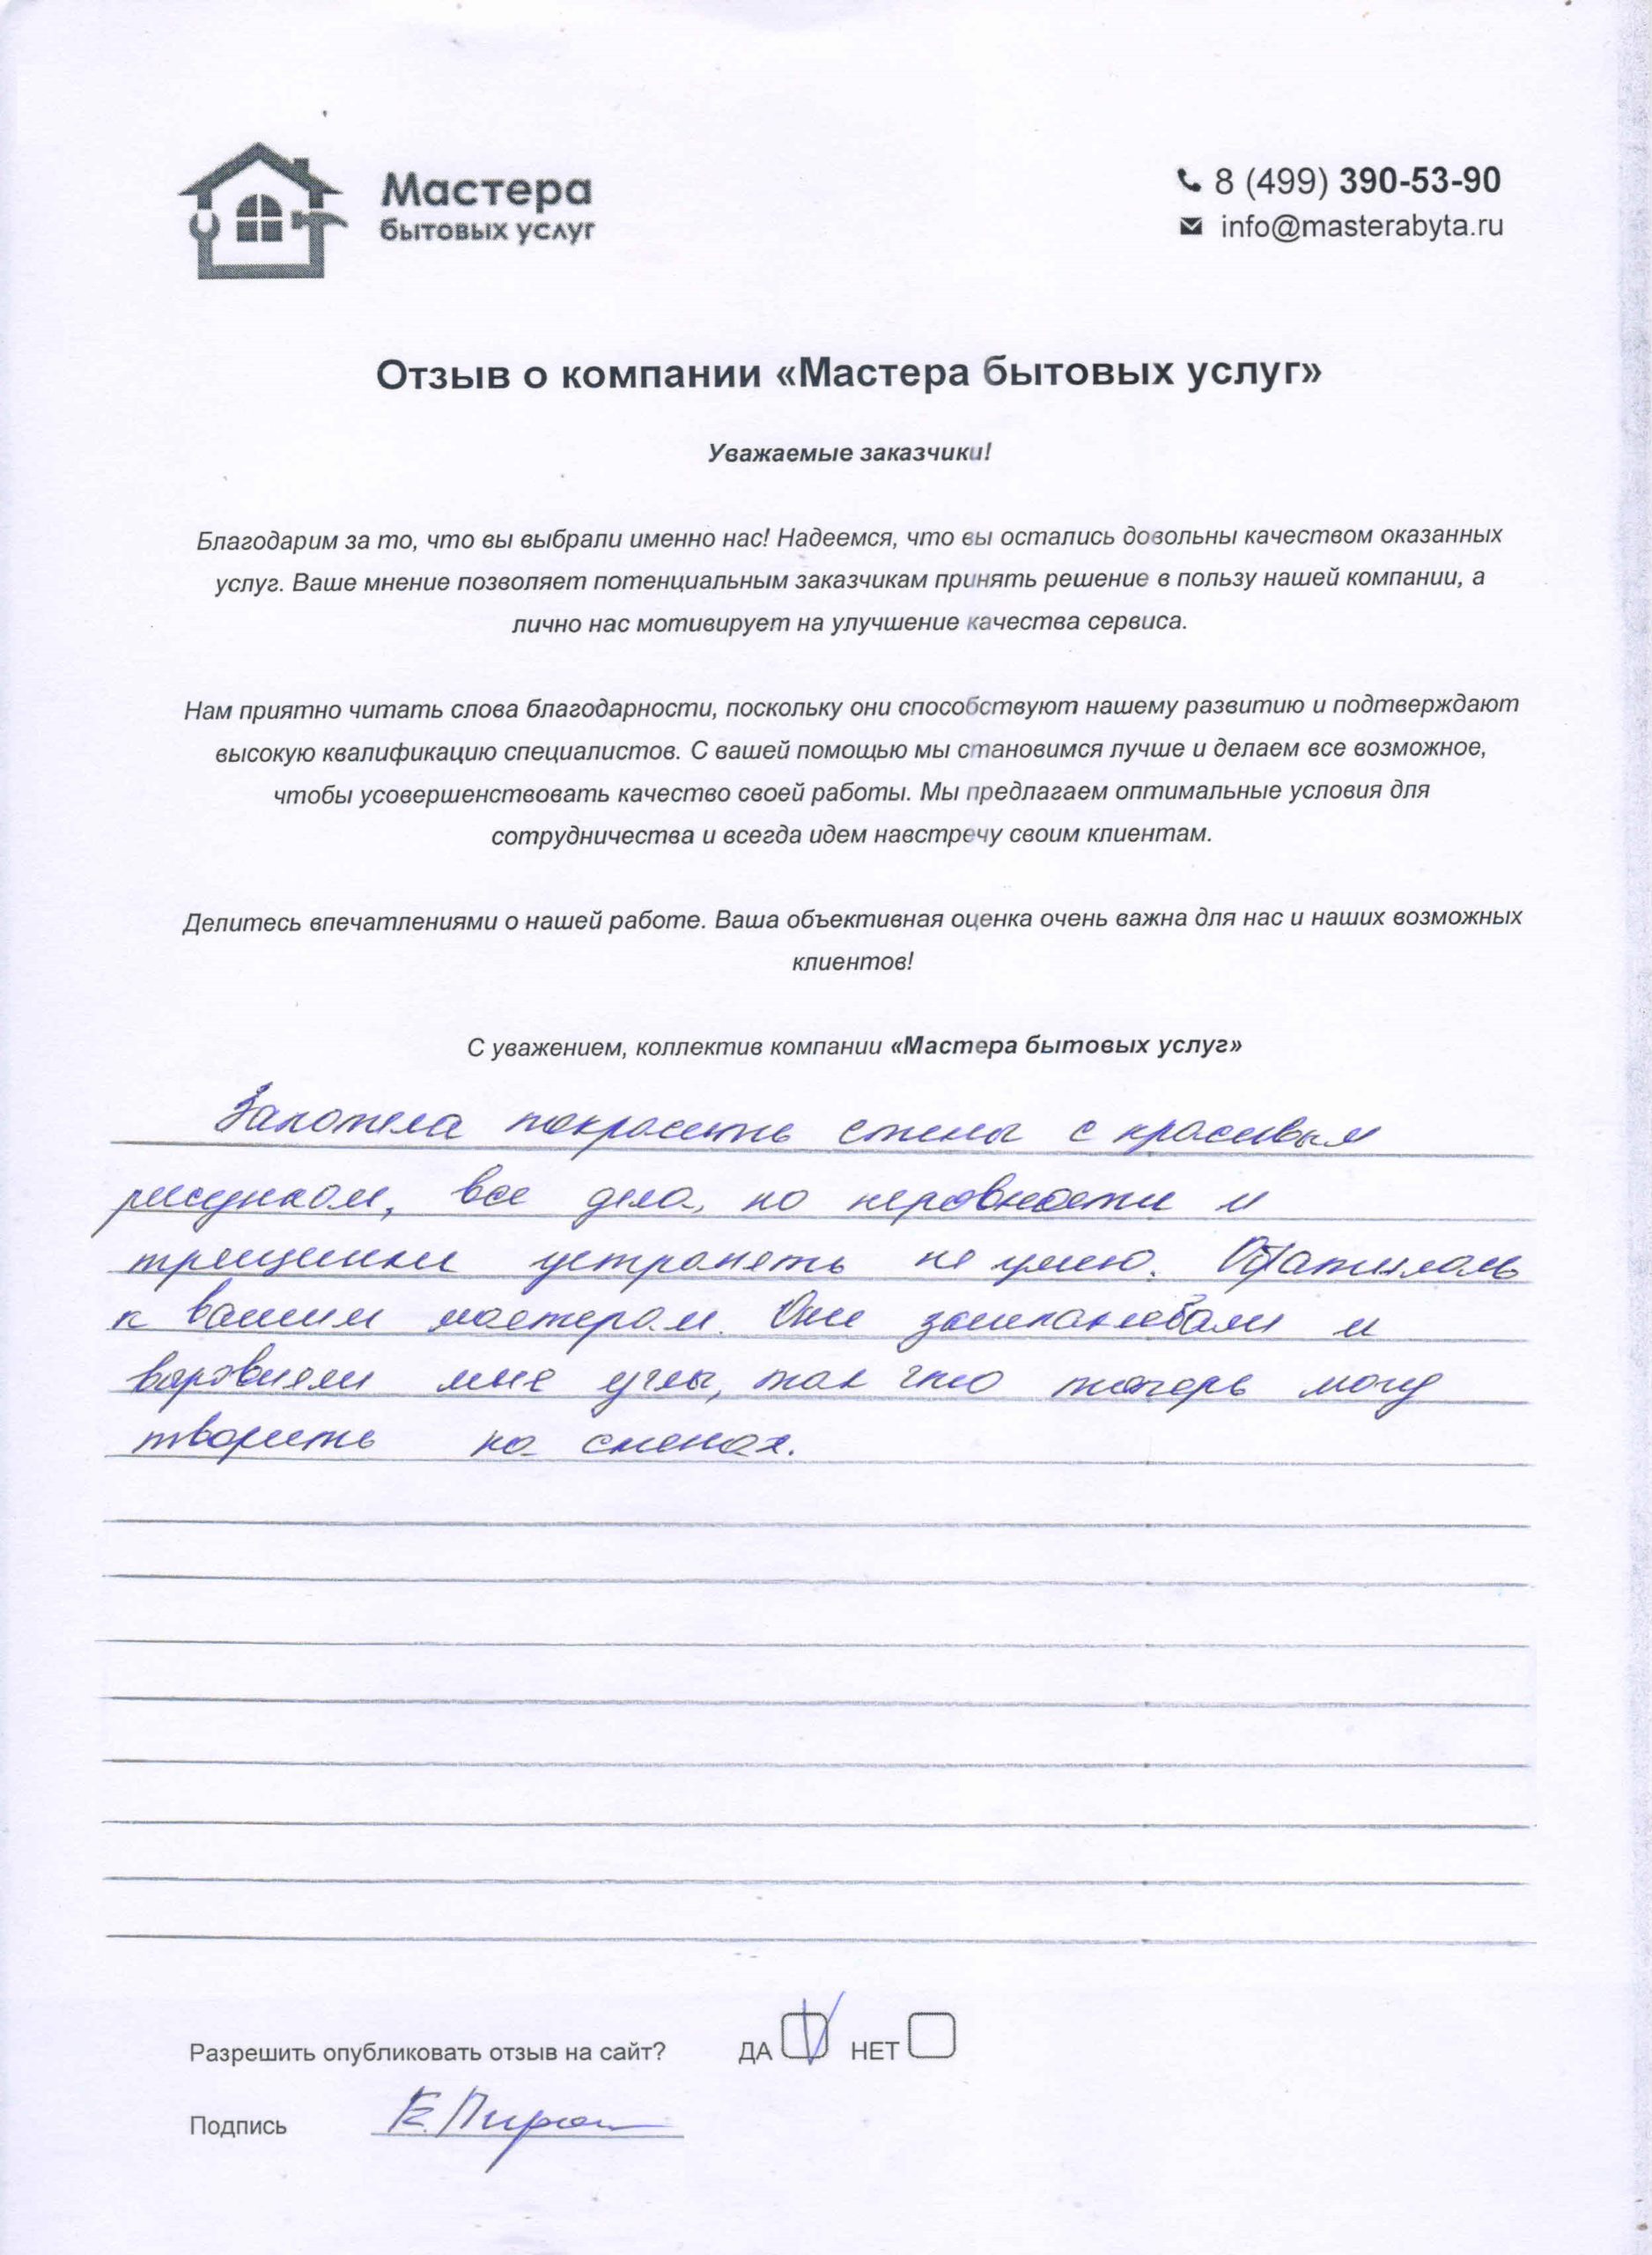 Мастера
бытовых услуг
8 (499) 390-53-90
info@masterabyta.ru
Отзыв о компании «Мастера бытовых услуг»
Уважаемые заказчики!
Благодарим за то, что вы выбрали именно нас! Надеемся, что вы остались довольны качеством оказанных
услуг. Ваше мнение позволяет потенциальным заказчикам принять решение в пользу нашей компании, а
лично нас мотивирует на улучшение качества сервиса.
Нам приятно читать слова благодарности, поскольку они способствуют нашему развитию и подтверждают
высокую квалификацию специалистов. С вашей помощью мы становимся лучше и делаем все возможное,
чтобы усовершенствовать качество своей работы. Мы предлагаем оптимальные условия для
сотрудничества и всегда идем навстречу своим клиентам.
Делитесь впечатлениями о нашей работе. Ваша объективная оценка очень важна для нас и наших возможных
клиентов!
С уважением, коллектив компании «Мастера бытовых услуг»
Захотела покрасить стены с красивым
рисунком, все дела, но неровности и
трещинки устранять не умею. Обратилась
к вашим мастерам. Они зашпаклевали и
выровняли мне углы, так что теперь могу
творить на стенах.
Разрешить опубликовать отзыв на сайт? ДА НЕТ
Подпись